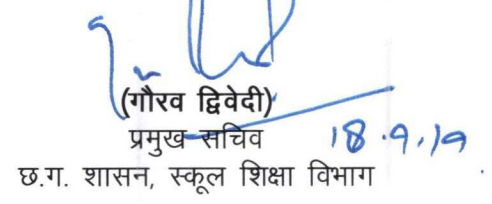 (गौरव द्विवेदी)
प्रमुख सचिव 18.9.19
छ.ग. शासन, स्कूल शिक्षा विभाग